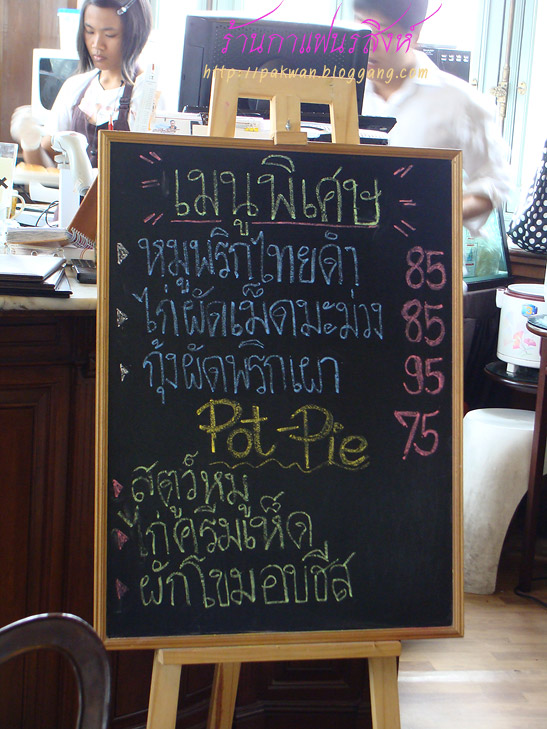 ร้านกาแฟนรสิงห์
http://pakwan.bloggang.com
เมนูพิเศษ
หมูพริกไทยดำ 85
ไก่ผัดเม็ดมะม่วง 85
กุ้งผัดพริกเผา 95
Pot-Pie 75
สตูว์หมู
ไก่ครีมเห็ด
ผักโขมอบชีส